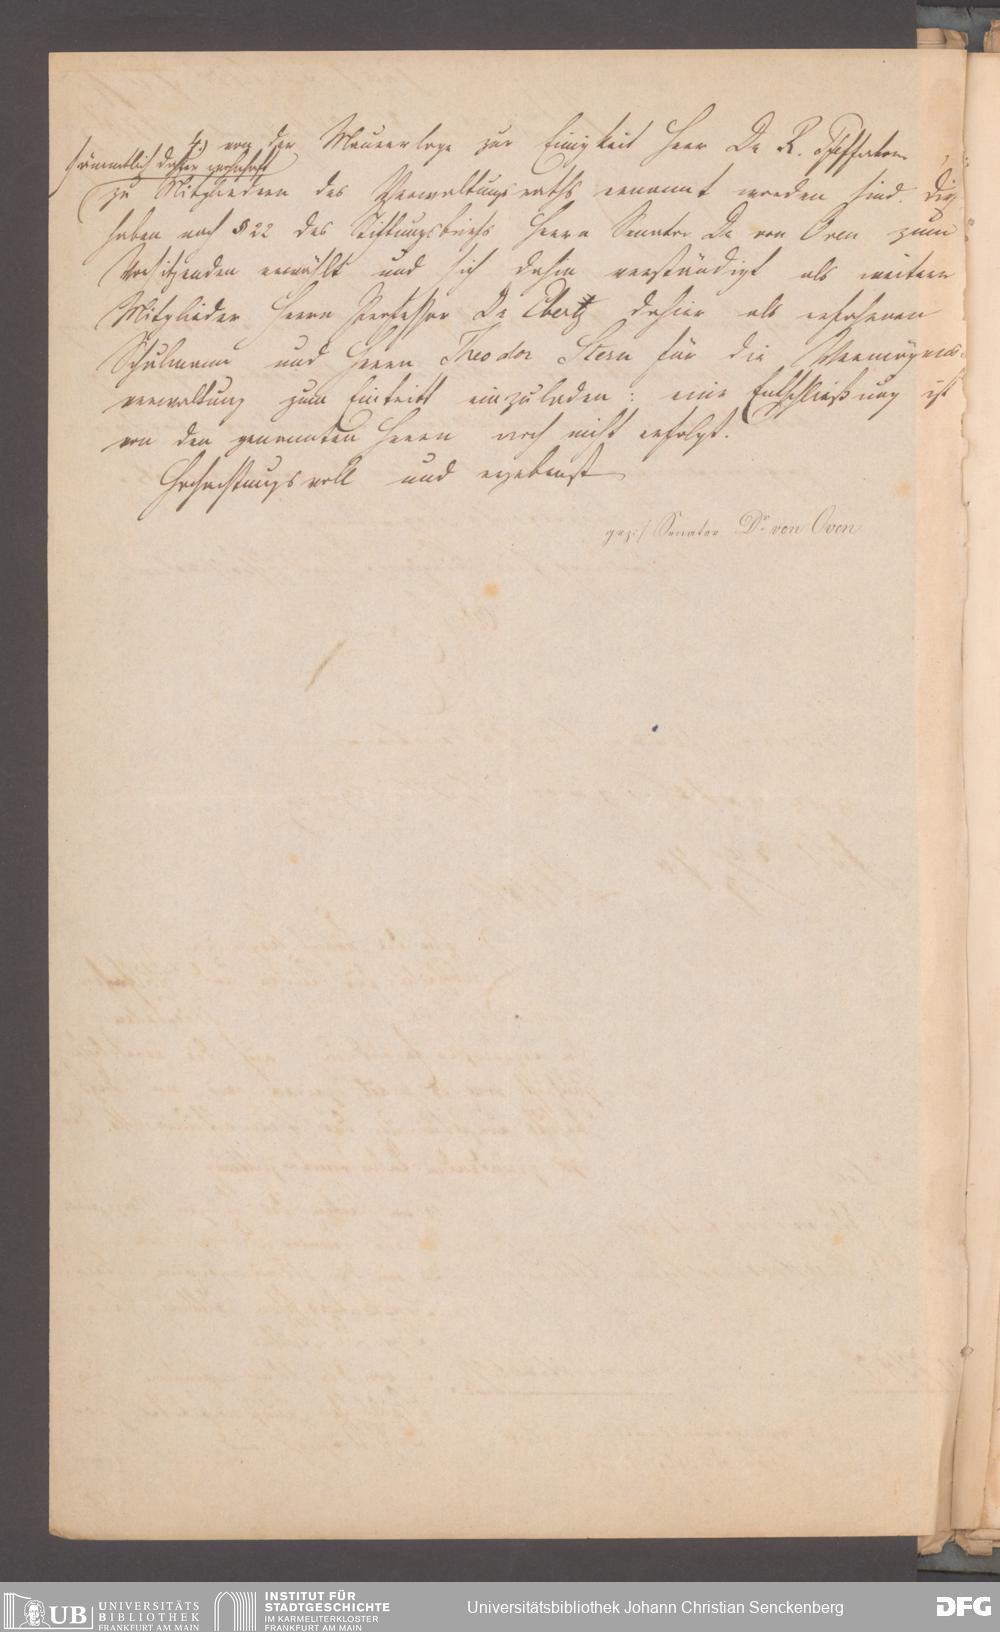 4.) von der Maurerloge zur Einigkeit Herr Dr R.
sämmtlich dahier wohnhaft
zu Mitgliedern des Verwaltungsraths ernannt worden sind. Diese
haben nach § 22 des Stiftungsbriefs Herrn Senator Dr von Oven zum
Vorsitzenden erwählt und sich dahin verständigt als weitere
Mitglieder Herrn Professor Dr Ebertz dahier als erfahrenen
Schulmann und Herrn Theodor Stern für die Vermögens-
verwaltung zum Eintritt einzuladen: eine Entschließung ist
von den genannten Herrn noch nicht erfolgt.
Hochachtungsvoll und ergebenst
gez:/ Senator Dr. von Oven
UB UNIVERSITÄTS
BIBLIOTHEK
FRANKFURT AM MAIN
INSTITUT FÜR
STADTGESCHICHTE
IM KARMELITERKLOSTER
FRANKFURT AM MAIN
Universitätsbibliothek Johann Christian Senckenberg
DFG